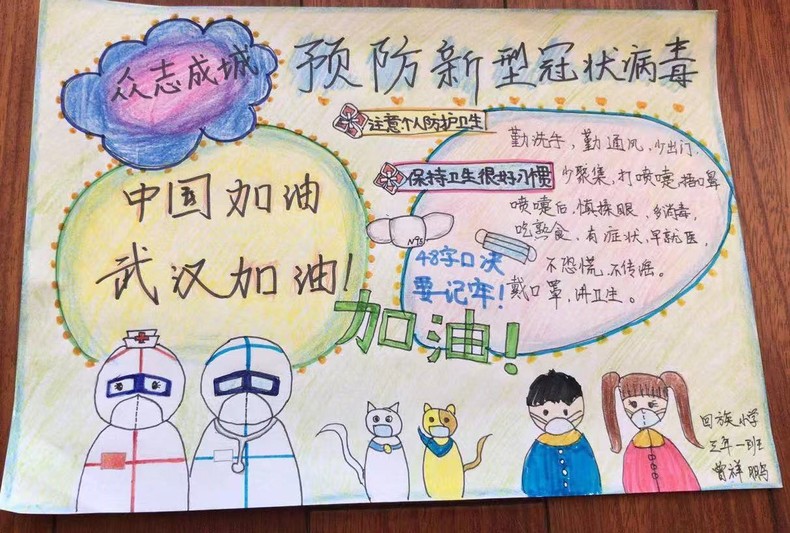 众志成城
预防新型冠状病毒
注意个人防护卫生
保持卫生很好习惯
中国加油
武汉加油!
勤洗手，勤通风，少出门，
少聚集，打喷嚏，捂口鼻
喷嚏后，慎揉眼，多消毒，
吃熟食，有症状，早就医，
不恐慌，不传谣。
戴口罩，讲卫生。
N95
48字口决
要记牢!
加油!
回族小学
三年一班
曾祥鹏